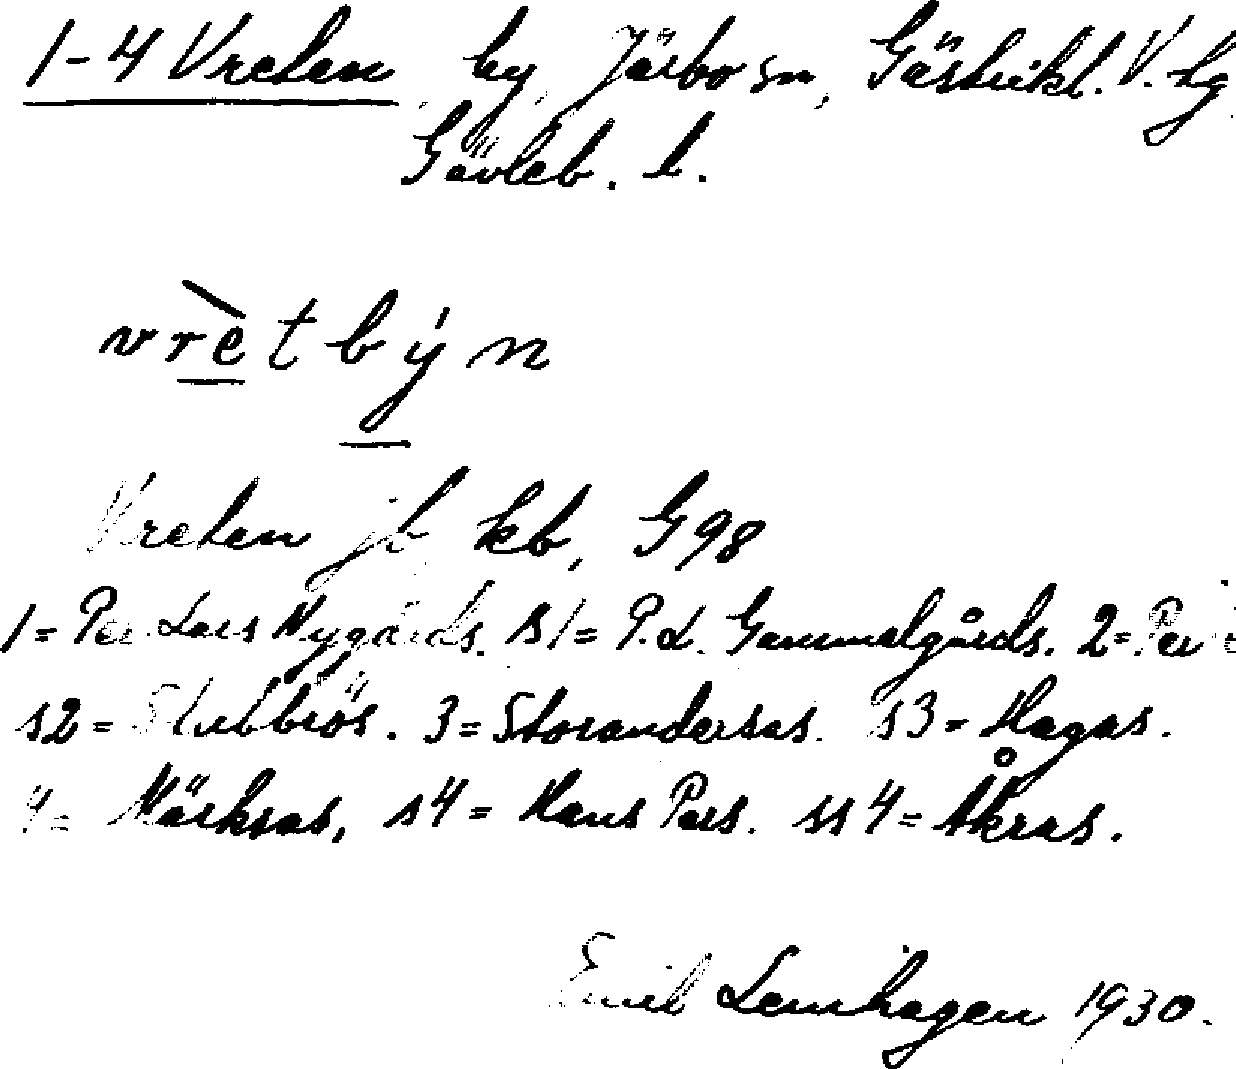 1-4 Vreten by, Järbo sn, Gästrikl. V. hg
Gävleb. l.
vrètbýn
Vreten jb, kb, G98
1= Per Lars Nygårds. s1= P.L. Gammelgårds. 2= Per
s2= Stubbrös. 3= Storandersas. s3= Hagas.
4= Märksas, s4= Hans Pers. ss4= Åkras.
Emil Lemhagen 1930.